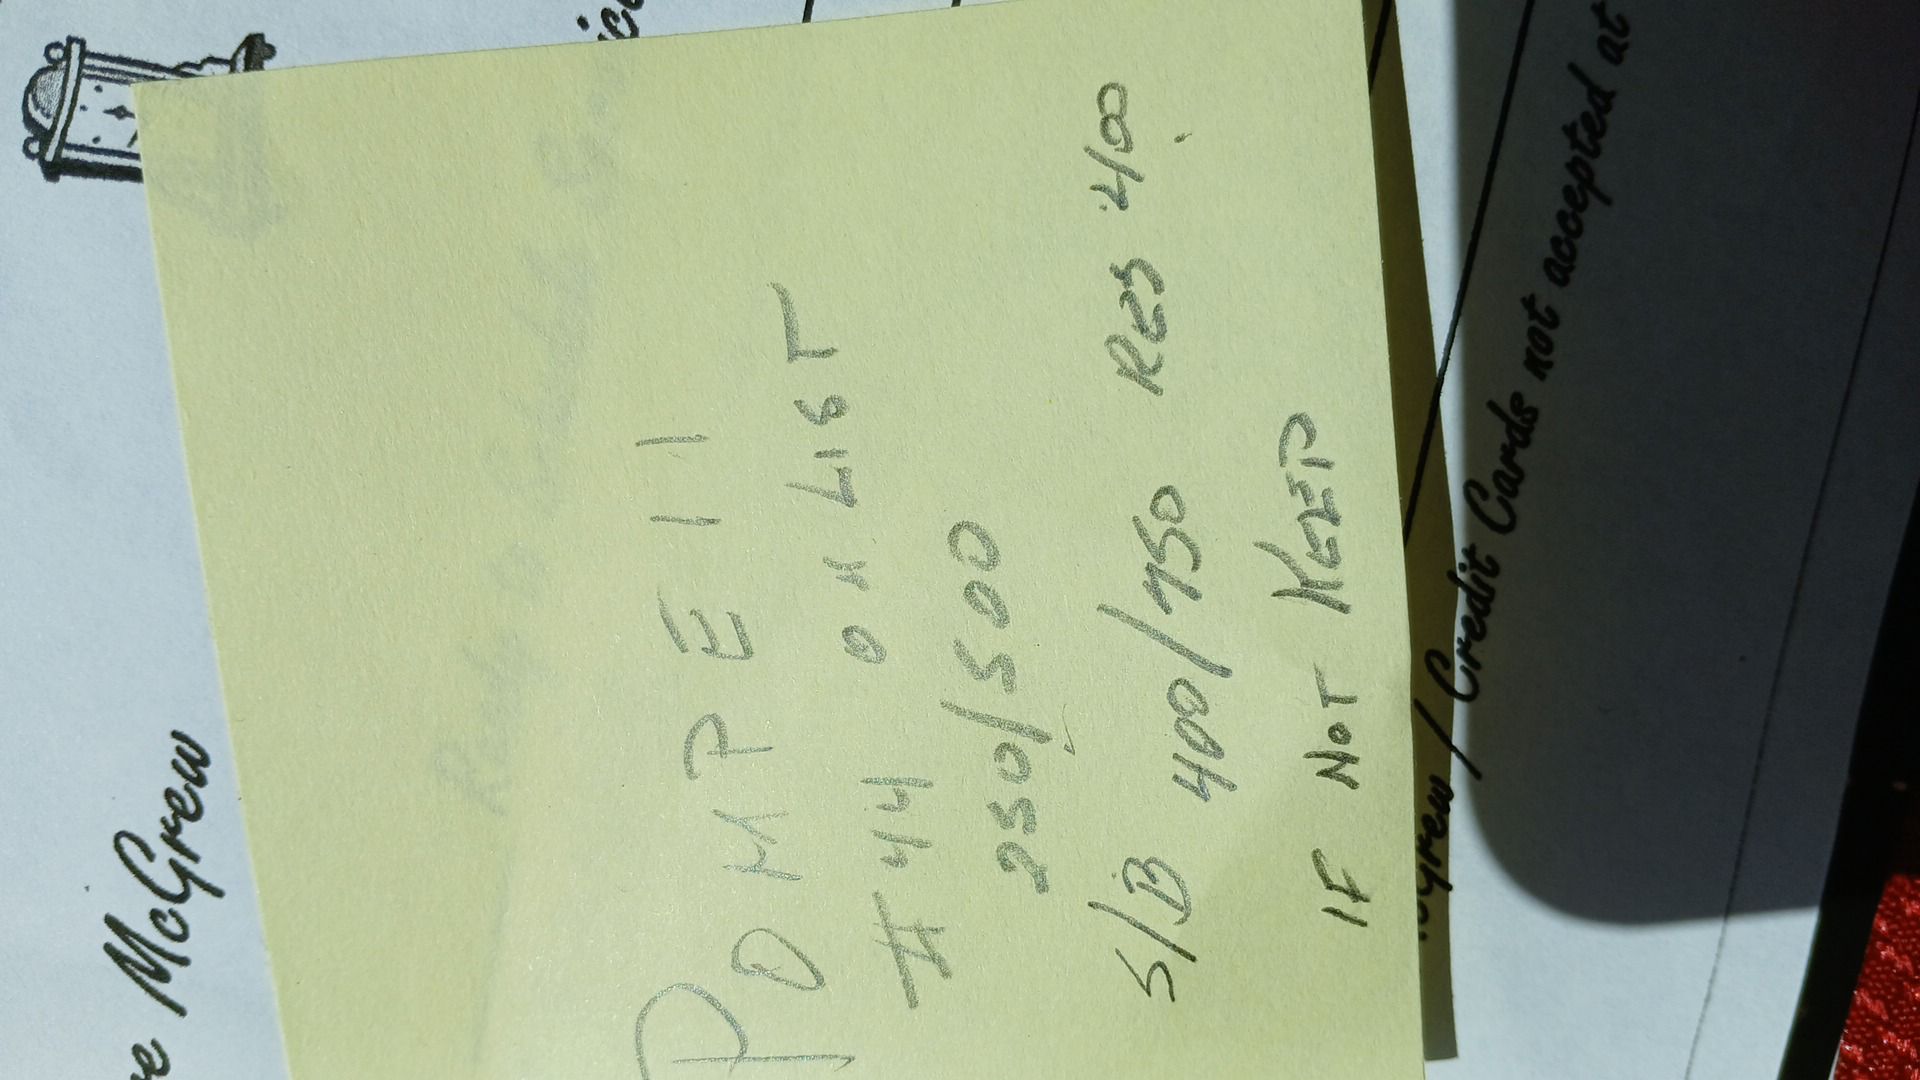 McGrew
POMPEII
#44 ON LIST
250/500
S/B 400/450 RES 400
IF NOT KEEP
/ Credit Cards not accepted at